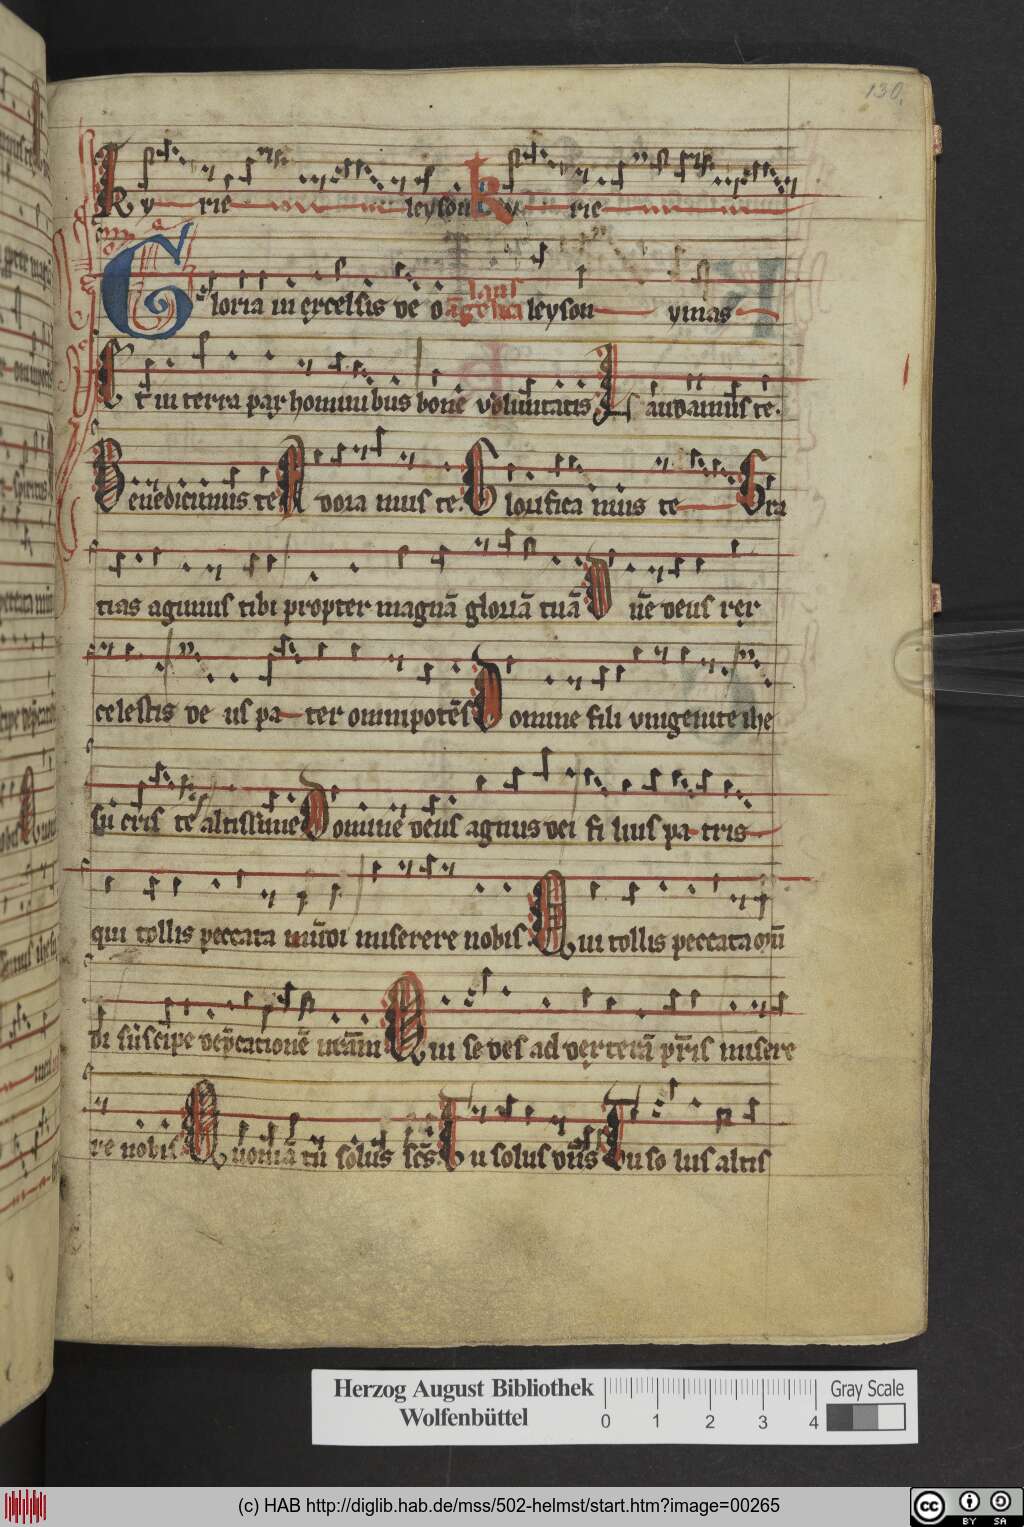 130.
Ky rie leyson Ky rie
Gloria in excelsis de o laus angelica leyson ymas
Et in terra pax hominibus bone voluntatis Laudamus te.
Benedicimus te Adora mus te. Glorifica mus te Gra
tias agimus tibi propter magnā gloriā tuā Dn̄e deus rex
celestis de us pa ter omnipotēs Domine fili vnigenite ihe
su cris te altissime Domine deus agnus dei fi lius pa tris
qui tollis peccata mūdi miserere nobis Qui tollis peccata mū
di suscipe dep̄cationē nr̄am Qui sedes ad dexterā pr̄is misere
re nobis Quoniā tu solus sc̄s. Tu solus dn̄s Tu so lus altis
Herzog August Bibliothek
Wolfenbüttel
0 1 2 3 4
Gray Scale
(c) HAB http://diglib.hab.de/mss/502-helmst/start.htm?image=00265
cc BY SA